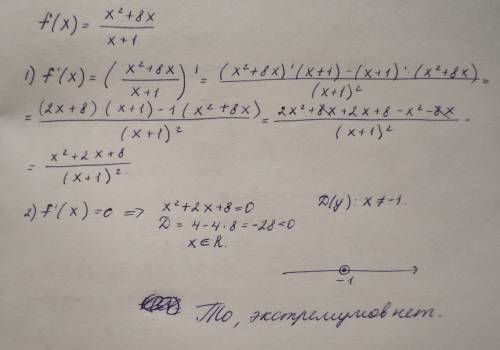 f(x) = (x²+8x)/(x+1)
1) f'(x) = ((x²+8x)/(x+1))' = ((x²+8x)'(x+1)-(x+1)'·(x²+8x))/(x+1)² =
= ((2x+8)(x+1)-1(x²+8x))/(x+1)² = (2x²+8x+2x+8-x²-8x)/(x+1)² -
= (x²+2x+8)/(x+1)²
2) f'(x)=0 => x²+2x+8=0 D(y): x≠-1.
D = 4-4·8=-28<0
x∈R.
-1
То, экстремумов нет.